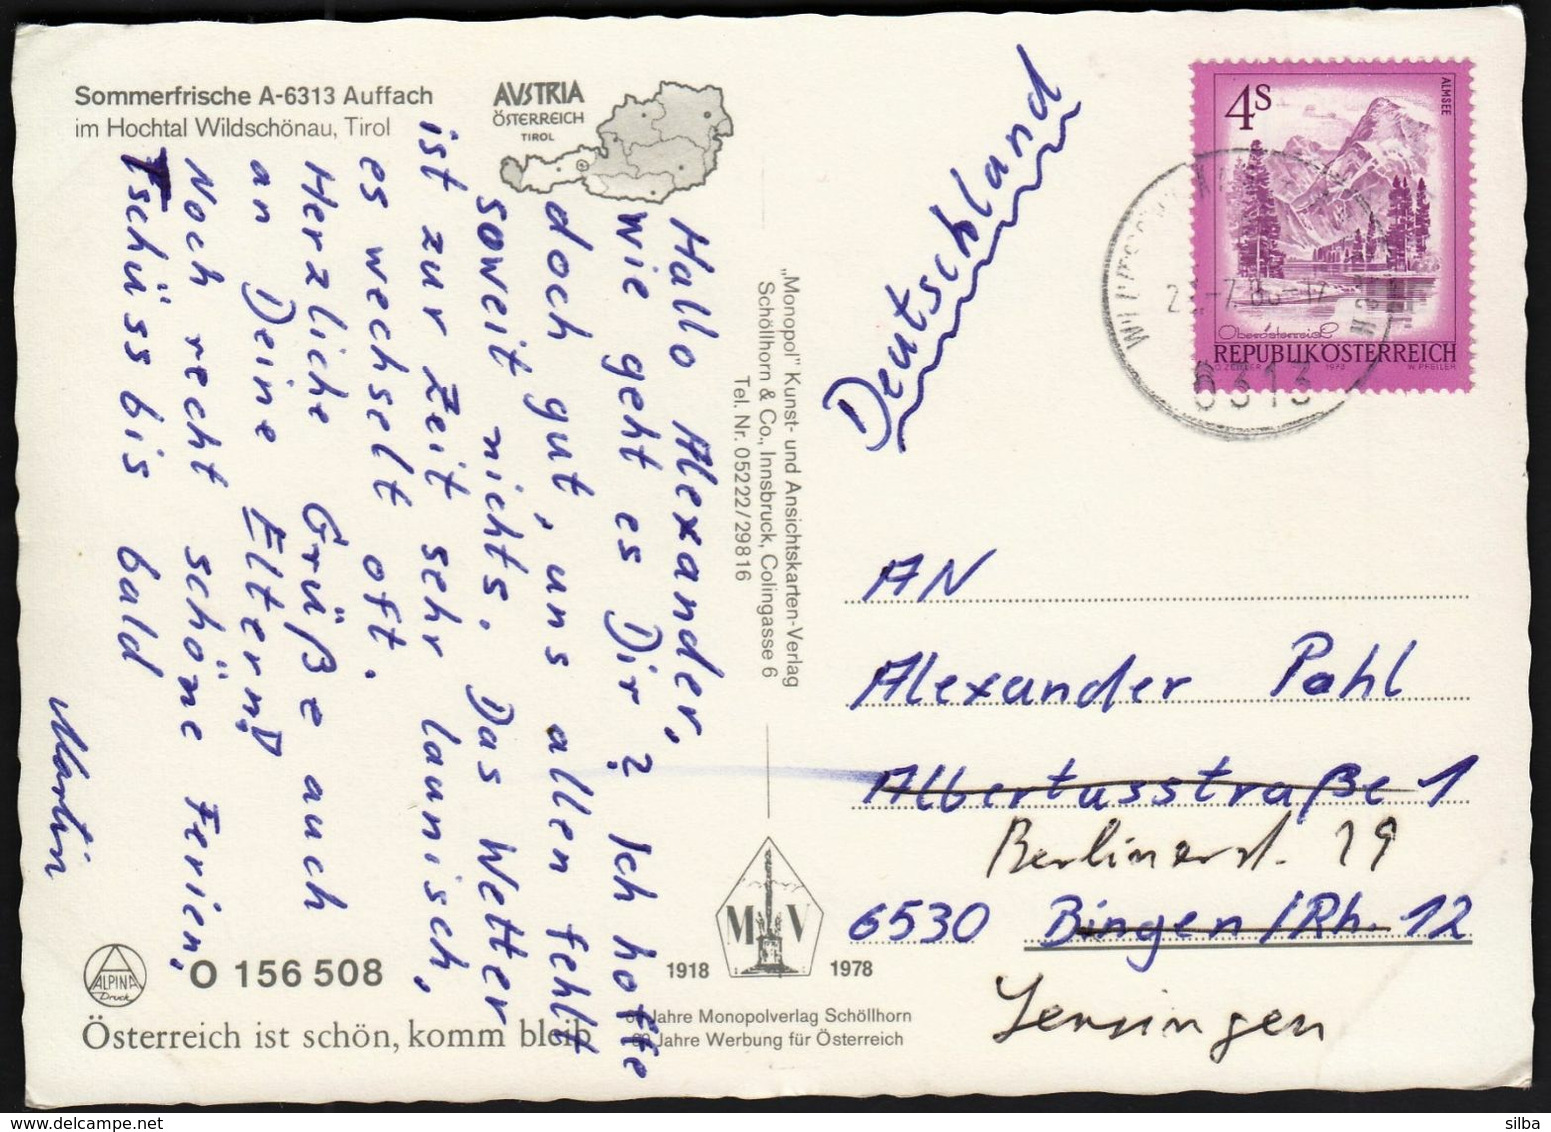 Sommerfrische A-6313 Auffach
im Hochtal Wildschönau, Tirol
AVSTRIA
ÖSTERREICH
TIROL
Hallo Alexander,
wie geht es Dir? Ich hoffe
doch gut, uns allen fehlt
soweit nichts. Das Wetter
ist zur Zeit sehr launisch,
es wechselt oft.
Herzliche Grüße auch
an Deine Eltern!
Noch recht schöne Ferien.
Tschüss bis bald
Martin
„Monopol" Kunst- und Ansichtskarten-Verlag
Schöllhorn & Co., Innsbruck, Colingasse 6
Tel. Nr. 05222/29816
Deutschland
4S
ALMSEE
Oberösterreich
REPUBLIK ÖSTERREICH
1973 W. PFEILER
6313
AN
Alexander Pohl
Albertusstraße 1
Berlinerst. 29
6530 Bingen/Rh. 12
MV
1918 1978
Jahre Monopolverlag Schöllhorn
Jahre Werbung für Österreich
ALPINA
Druck
O 156 508
Österreich ist schön, komm bleib
www.delcampe.net
silba